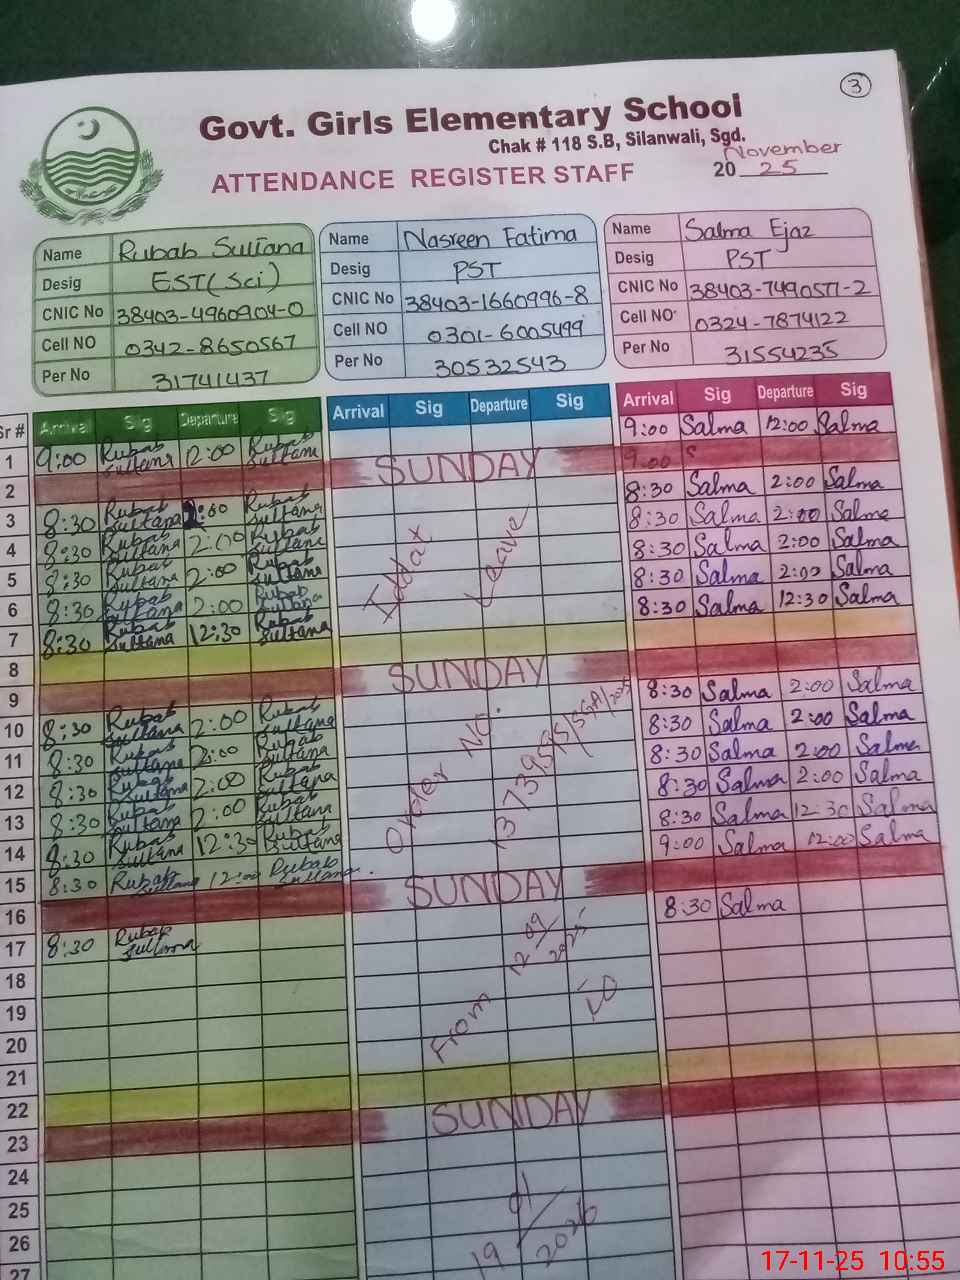 3
Govt. Girls Elementary School
Chak # 118 S.B, Silanwali, Sgd.
November
ATTENDANCE REGISTER STAFF 2025
Name Rubab Sultana
Desig EST(Sci)
CNIC No 38403-4960904-0
Cell NO 0342-8650567
Per No 31741437
Name Nasreen Fatima
Desig PST
CNIC No 38403-1660996-8
Cell NO 0301-6005499
Per No 30532543
Name Salma Ejaz
Desig PST
CNIC No 38403-7490577-2
Cell NO 0324-7874122
Per No 31554235
Sr # Arrival Sig Departure Sig Arrival Sig Departure Sig Arrival Sig Departure Sig
1 9:00 Rubab Sultana 12:00 Rubab Sultana 9:00 Salma 12:00 Salma
2 SUNDAY 9:00 S
3 8:30 Rubab Sultana 2:00 Rubab Sultana 8:30 Salma 2:00 Salma
4 8:30 Rubab Sultana 2:00 Rubab Sultana 8:30 Salma 2:00 Salma
5 8:30 Rubab Sultana 2:00 Rubab Sultana 8:30 Salma 2:00 Salma
6 8:30 Rubab Sultana 2:00 Rubab Sultana 8:30 Salma 2:00 Salma
7 8:30 Rubab Sultana 12:30 Rubab Sultana 8:30 Salma 12:30 Salma
Iddat Leave
8
9 SUNDAY
10 8:30 Rubab Sultana 2:00 Rubab Sultana 8:30 Salma 2:00 Salma
11 8:30 Rubab Sultana 2:00 Rubab Sultana 8:30 Salma 2:00 Salma
12 8:30 Rubab Sultana 2:00 Rubab Sultana 8:30 Salma 2:00 Salma
13 8:30 Rubab Sultana 2:00 Rubab Sultana 8:30 Salma 2:00 Salma
14 8:30 Rubab Sultana 12:30 Rubab Sultana 8:30 Salma 12:30 Salma
15 8:30 Rubab Sultana 12:00 Rubab Sultana 9:00 Salma 12:00 Salma
Order No.
16 SUNDAY
17 8:30 Rubab Sultana 8:30 Salma
18
19
20
From 12/09/2025 to
21
22
23 SUNDAY
24
25
26
19/01/2026
27
17-11-25 10:55